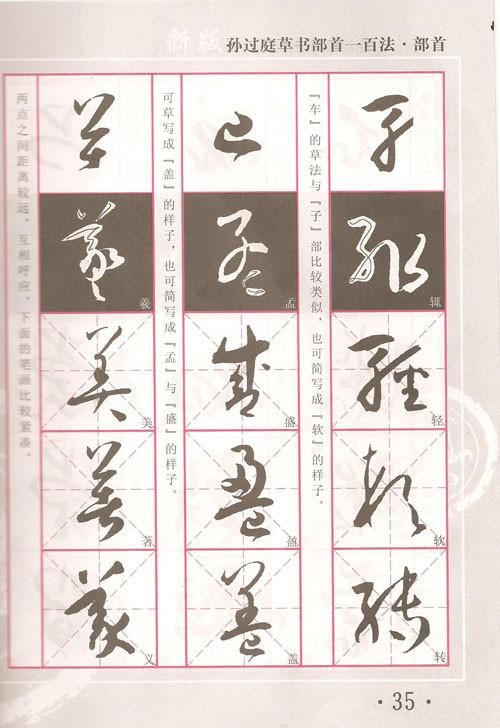 新版 孙过庭草书部首一百法·部首
『车』的草法与『子』部比较类似，也可简写成『软』的样子。
辄
轻
软
转
可草写成『盖』的样子，也可简写成『孟』与『盛』的样子。
孟
盛
盈
盖
两点之间距离较远，互相呼应，下面的笔画比较紧凑。
羲
美
著
义
·35·